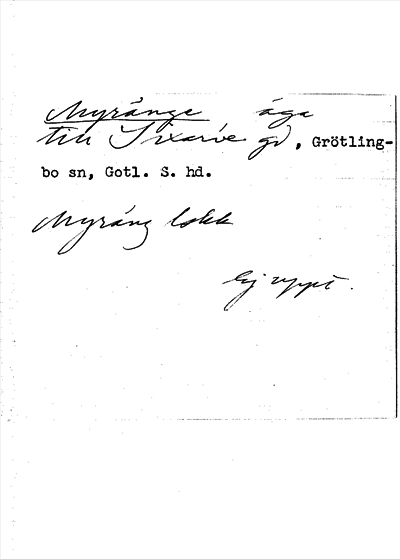 Myränge äga
till Sixarve gd, Grötling-
bo sn, Gotl. S. hd.
Myräng lokk
Ej uppt.